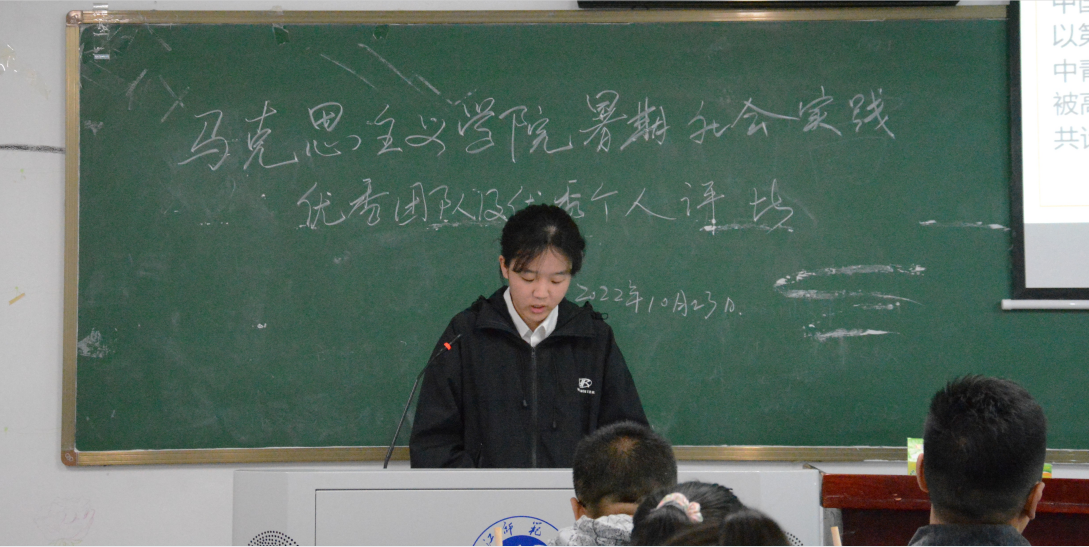 马克思主义学院暑期社会实践
优秀团队及优秀个人评比
2022年10月23日.
以第
中青
被高
共
师范